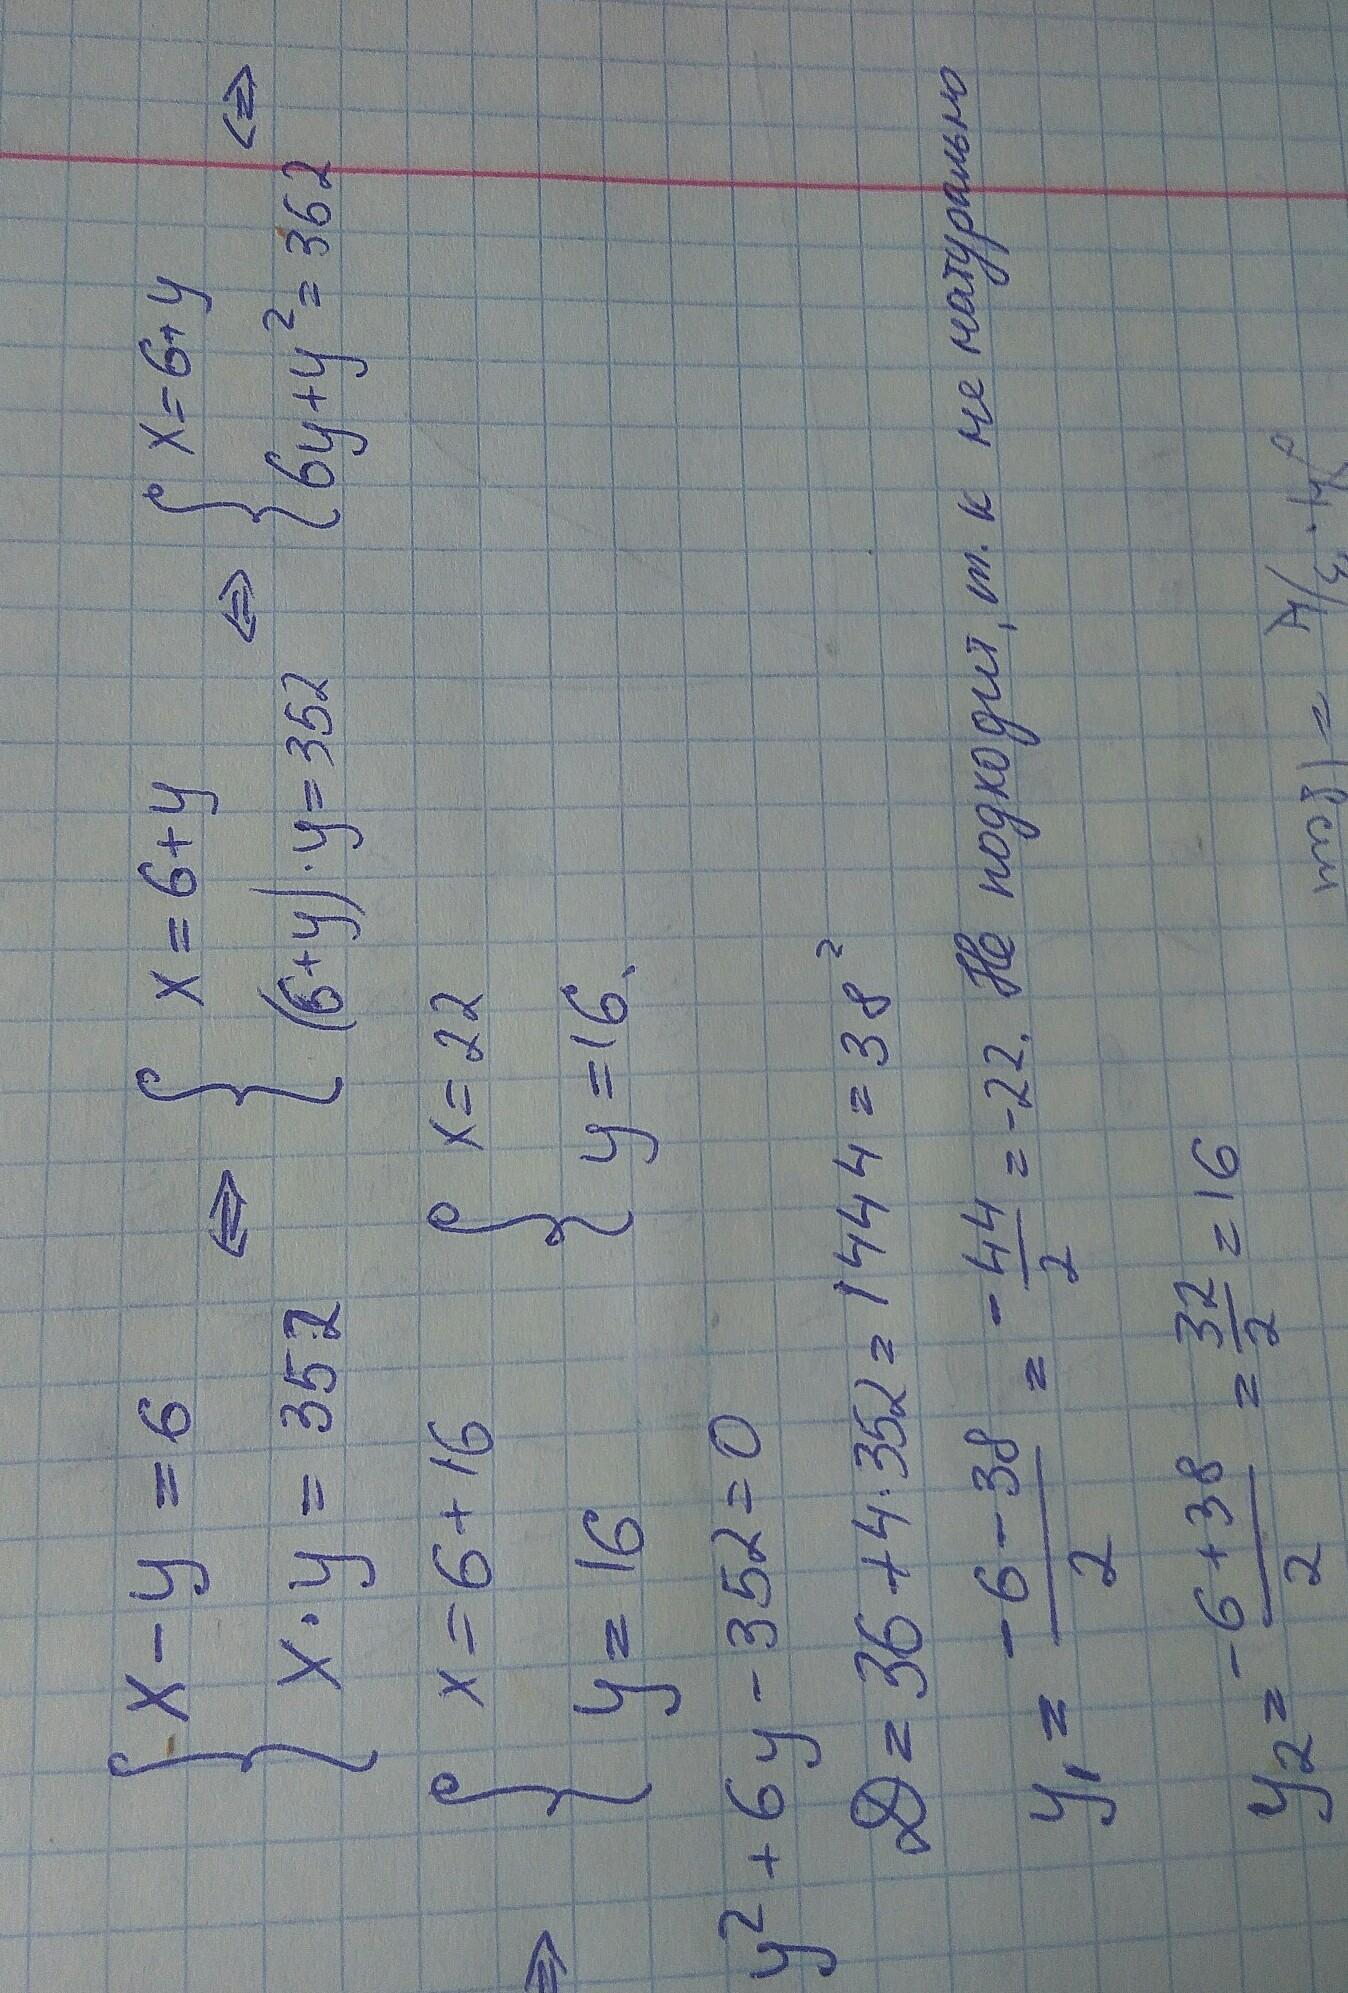 { x - y = 6 ⇔ { x = 6 + y ⇔ { x = 6 + y ⇔
{ x · y = 352 { (6 + y) · y = 352 { 6y + y² = 362
{ x = 6 + 16 { x = 22
⇒ { y = 16 { y = 16
y² + 6y - 352 = 0
D = 36 + 4 · 352 = 1444 = 38²
y₁ = (-6 - 38)/2 = -44/2 = -22. Не подходит, т. к не натурально
y₂ = (-6 + 38)/2 = 32/2 = 16